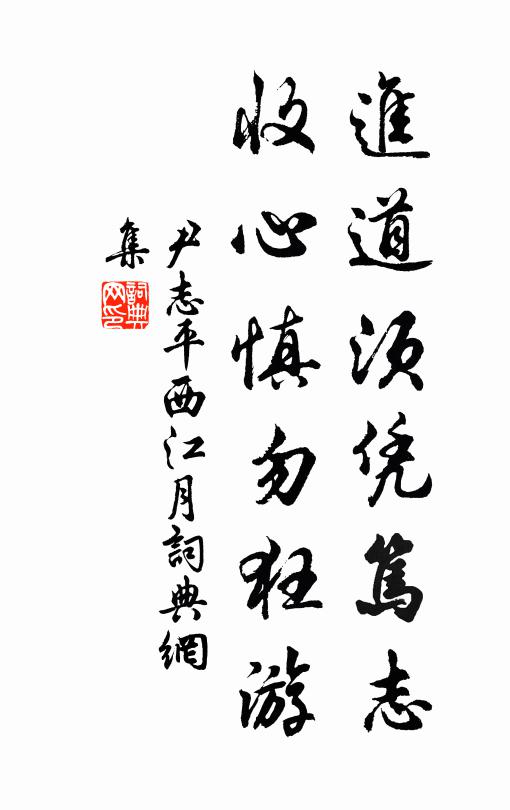 進道须凭篤志
收心慎勿狂游
尹志平西江月詞典網
集
詞典網印